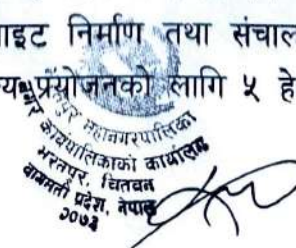 ाइट निर्माण तथा संचाल
य प्रयोजनको लागि ५ हे
महानगरपालिका
कार्यपालिकाको कार्यालय
भरतपुर, चितवन
बागमती प्रदेश, नेपाल
२०७३